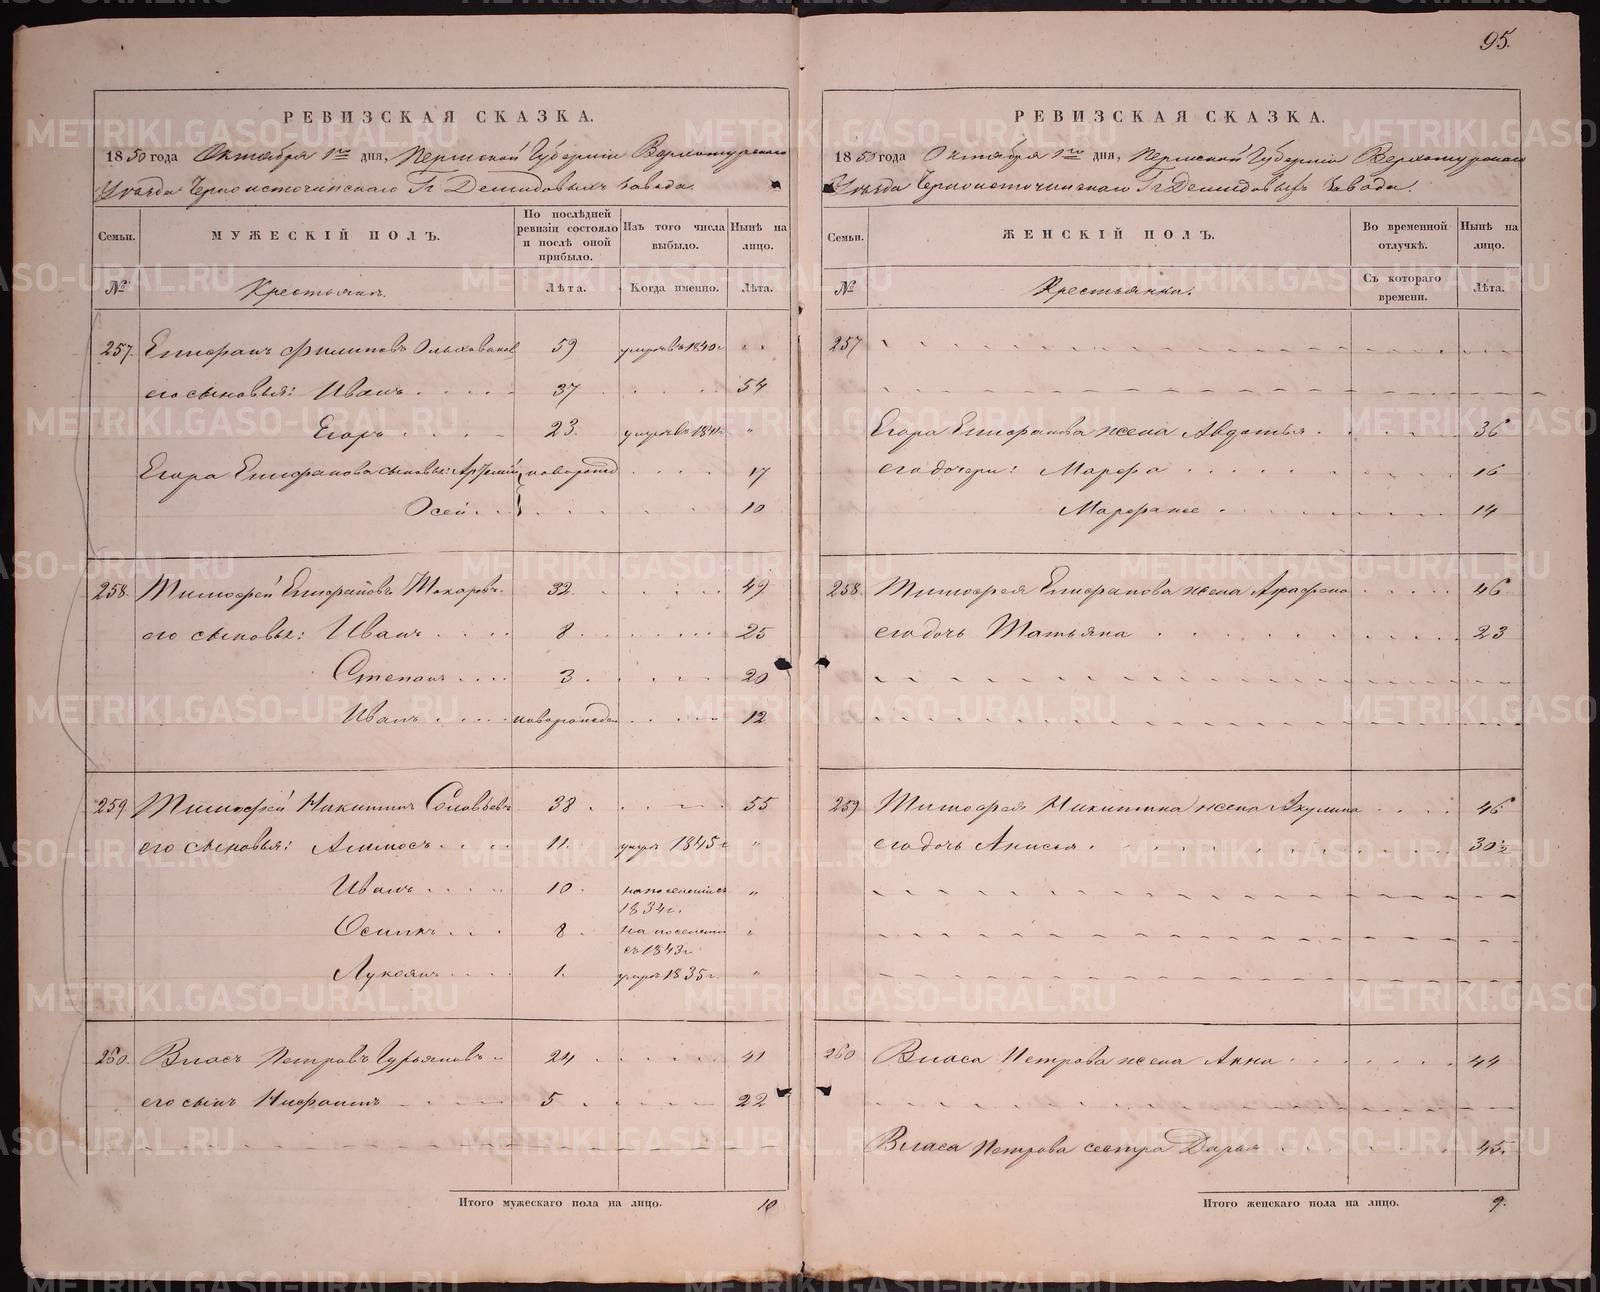 95.
РЕВИЗСКАЯ СКАЗКА.
1850 года Октября 1го дня, Пермской Губернии Верхотурскаго
Уезда Черноисточинскаго Гг Демидовыхъ завода.
Семьи.
МУЖЕСКІЙ ПОЛЪ.
По послѣдней ревизіи состояло и послѣ оной прибыло.
Изъ того числа выбыло.
Нынѣ на лицо.
№
Крестьяне.
Лѣта.
Когда именно.
Лѣта.
257. Епифанъ Филиповъ Ольховиков 59 умръ въ 1840 г
его сыновья: Иванъ 37 54
Егоръ 23. умръ въ 1841 г "
Егора Епифанова сыновья: Артемій новорожд 17
Осей 10
258. Тимофей Епифановъ Токаревъ 32 49
его сыновья: Иванъ 8 25
Степанъ 3 20
Иванъ новорожден 12
259 Тимофей Никитинъ Соловьевъ 38 55
его сыновья: Амосъ 11 умръ 1845 г "
Иванъ 10 на поселеніи съ "
1834 г.
Осипъ 8 на поселеніи "
съ 1843 г
Лукоянъ 1. умръ 1835 г "
260. Власъ Петровъ Гурьяновъ 24 41
его сынъ 5 22
Итого мужескаго пола на лицо. 10
РЕВИЗСКАЯ СКАЗКА.
1850 года Октября 1го дня, Пермской Губерніи Верхотурскаго
Уезда Черноисточинскаго Гг Демидовыхъ завода.
Семьи.
ЖЕНСКІЙ ПОЛЪ.
Во временной отлучкѣ.
Нынѣ на лицо.
№
Крестьянки.
Съ котораго времени.
Лѣта.
257
Егора Епифанова жена Авдотья 36
его дочери: Марфа 16
14
258 Тимофея Епифанова жена Аграфена 46
его дочь Татьяна 23
259 Тимофея Никитина жена Акулина 46
его дочь Анисья 30½
260 Власа Петрова жена Анна 44
Власа Петрова сестра Дарья 45.
Итого женскаго пола на лицо. 9.
METRIKI.GASO-URAL.RU